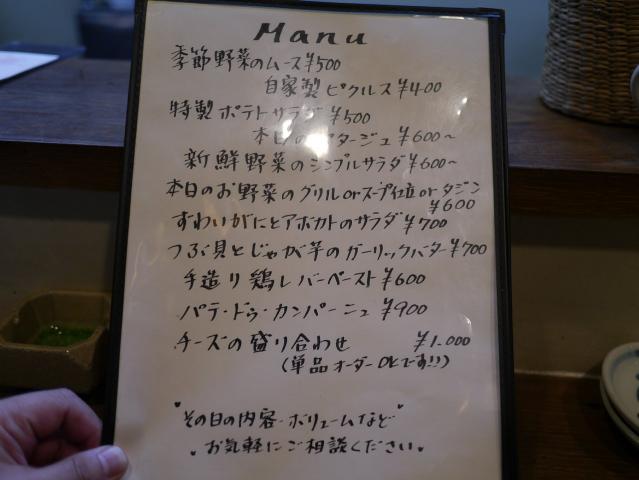 Manu
季節野菜のムース ¥500
自家製ピクルス ¥400
特製ポテトサラダ ¥500
本日の タージュ ¥600～
新鮮野菜のシンプルサラダ ¥600～
本日のお野菜のグリル or スープ仕立 or タジン
¥600
ずわいがにとアボカドのサラダ ¥700
つぶ貝とじゃが芋のガーリックバター ¥700
手造り鶏レバーペースト ¥600
パテ・ドゥ・カンパーニュ ¥900
チーズの盛り合わせ ¥1.000
(単品オーダーOKです!!)
その日の内容・ボリュームなど
お気軽にご相談ください。